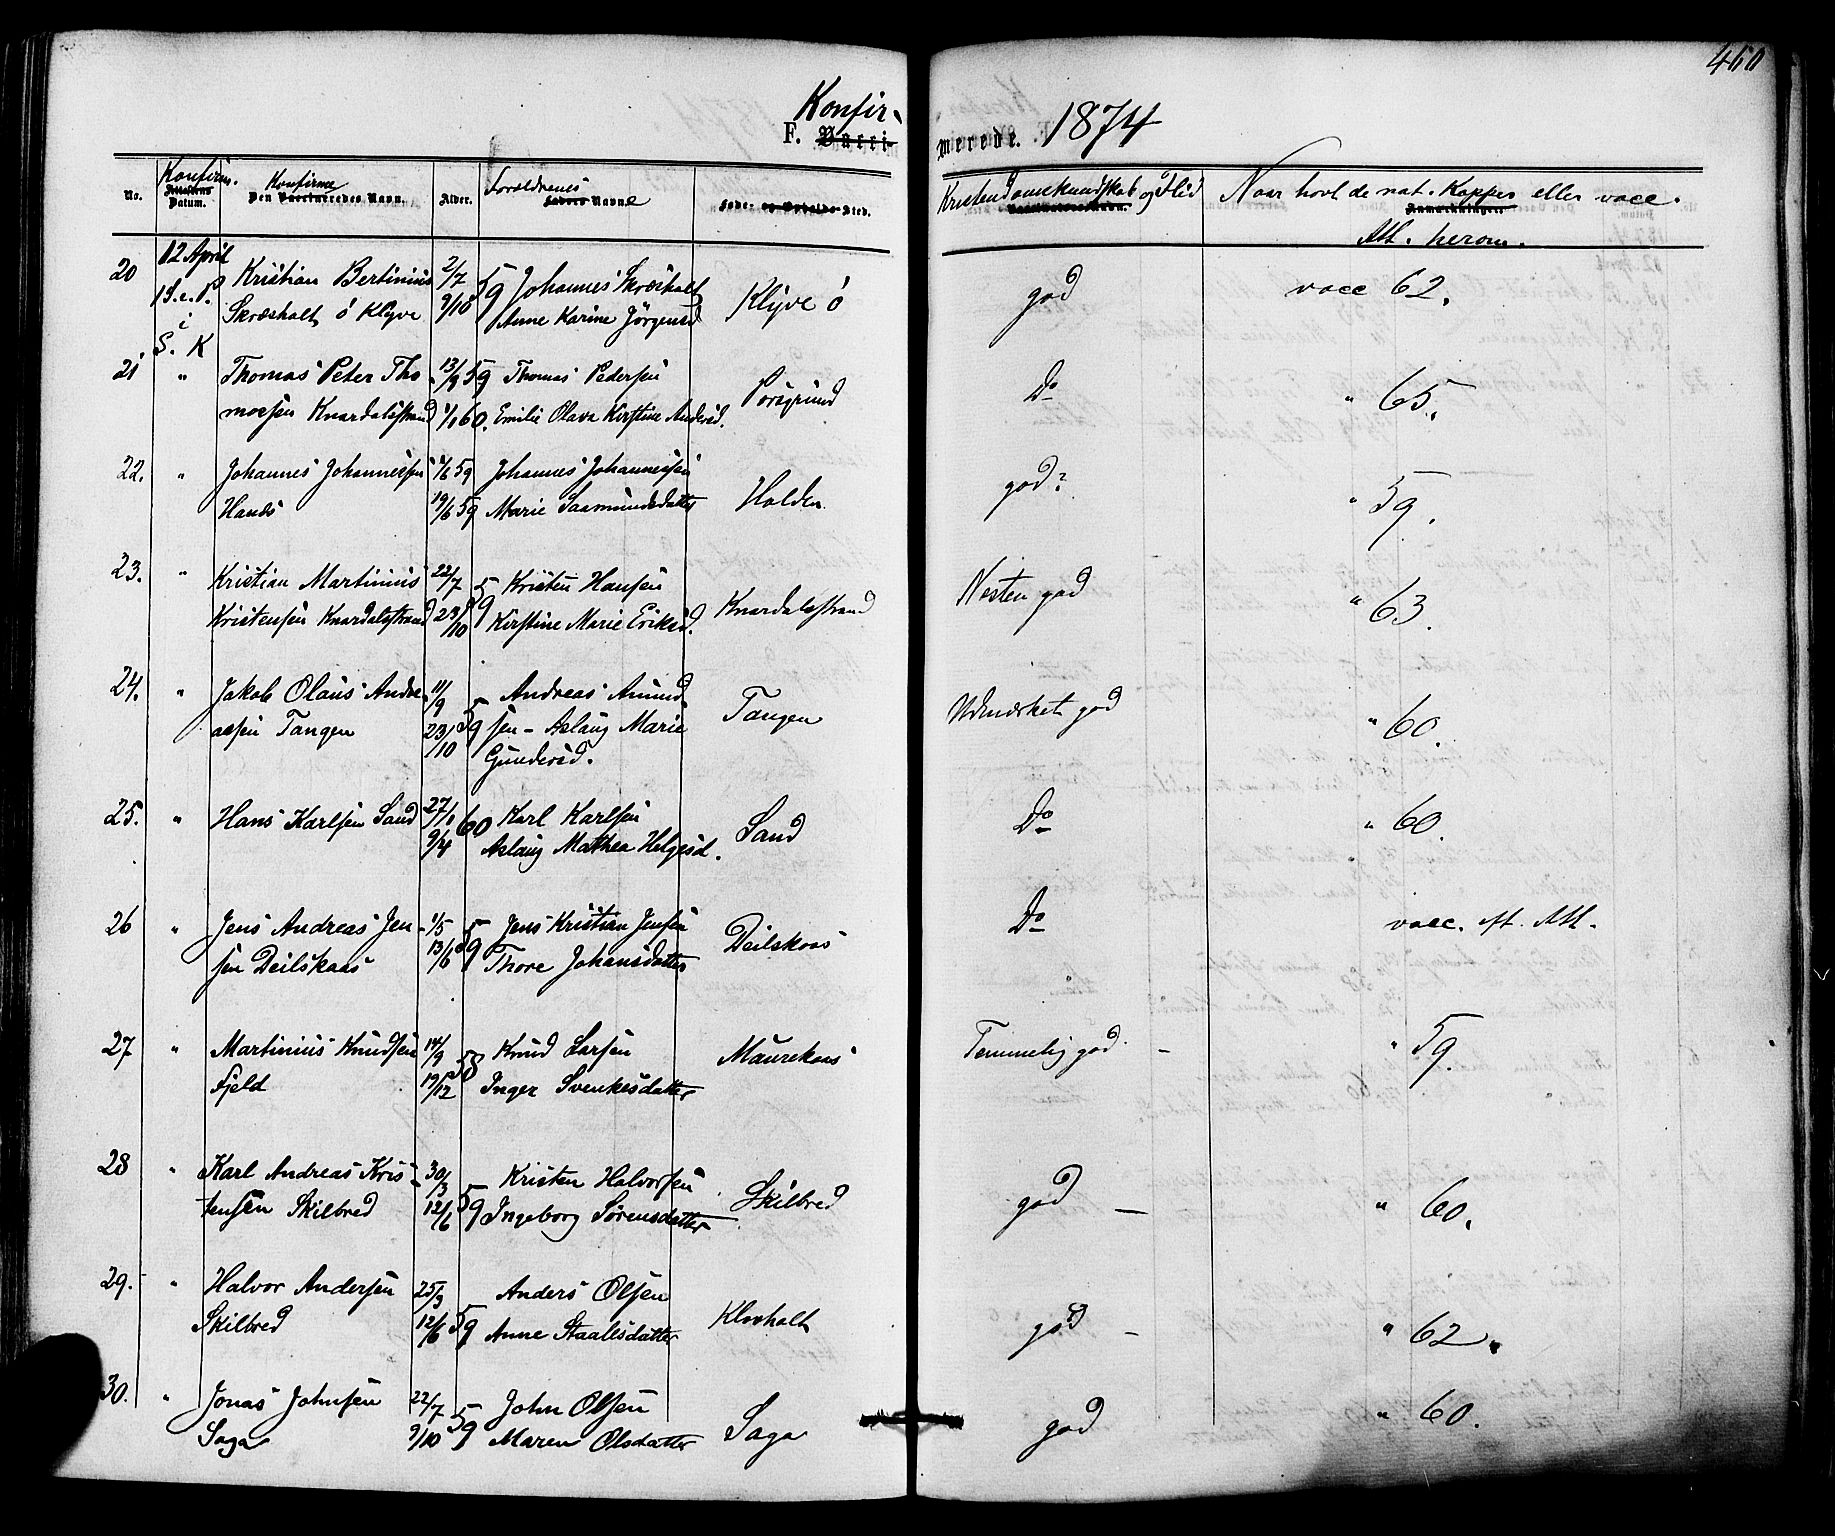 460
Konfir-
F. Vacci-
merede. 1874
No.
Konfirm.
Attestens
Datum.
Konfirme
Den Vaccineredes Navn.
Alder.
Forældrenes
Faders Navne
Føde- og Opholds-Sted.
Kristendomskundskab og Flid
Naar havt de nat. Kopper eller vacc.
Anmærkninger
Att. herom.
20 12 April Kristian Bertinius 2/7 59 Johannes Skræsholt Klyve ö god vacc 62.
1 S. e. P. Skræsholt ö Klyve 9/10 Anne Karine Jörgensd
i
S. K
21 " Thomas Peter Tho- 13/9 59 Thomas Pedersen Porsgrund Do " 65.
massen Knardalsstrand 1/1 60. Emilie Olava Kirstine Andersd.
22. " Johannes Johannessen 1/6 59 Johannes Johannessen Holden god? " 59.
Hanes 19/6 59 Marie Saamundsdatter
23. " Kristian Martinius 22/7 59 Kristen Hansen Knardalsstrand Nesten god " 63.
Kristensen Knardalsstrand 23/10 Kirstine Marie Eriksd.
24. " Jakob Olaus Andre- 11/9 59 Andreas Amund Tangen Udmærket god " 60.
assen Tangen 23/10 sen - Aslaug Marie
Gundersd.
25. " Hans Karlsen Sand 27/1 60 Karl Karlsen Sand Do " 60.
9/4 Aslaug Mathea Helgesd.
26 " Jens Andreas Jen- 1/5 59 Jens Kristian Jensen Deilskaas Do vacc. eft. Att.
sen Deilskaas 13/6 Thore Johansdatter
27 " Martinius Knudsen 14/9 58 Knud Larsen Maurekaas Temmelig god. - " 59.
Fjeld 19/12 Inger Svenkesdatter
28 " Karl Andreas Kris- 30/3 59 Kristen Halvorsen Skilbred god - " 60.
tensen Skilbred 12/6 Ingeborg Sörensdatter
29. " Halvor Andersen 25/3 59 Anders Olsen Klovholt god - " 62.
Skilbred 12/6 Anne Staalesdatter
30. " Jonas Johnsen 22/7 59 John Olsen Saga god " 60.
Saga 9/10 Maren Olsdatter